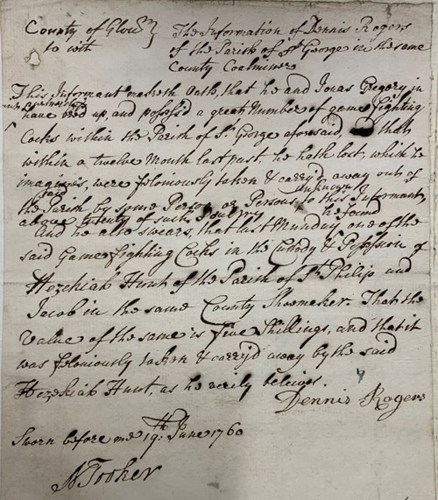 County of Glouc.r } The Information of Dennis Rogers
to wit of the Parish of St. George in the same
County Coalminer
This Informant maketh Oath, that he and Jonas Gregory in
have bred up, and posses'd a great Number of game fighting
Cocks within the Parish of St. George aforesaid, that
within a twelve Month last past he hath lost, which he
imagines, were feloniously taken & carry'd away out of
the Parish by some Person or Persons unknown to this Informant,
twenty of such
And he also swears, that last Munday he found one of the
said Game fighting Cocks in the Custody & Possession of
Hezekiah Hunt of the Parish of St. Philip and
Jacob in the same County Shoemaker. That the
Value of the same is five Shillings, and that it
was feloniously taken & carry'd away by the said
Hezekiah Hunt, as he verily believes.
Dennis Rogers
Sworn before me 19th. June 1760
N Tooker